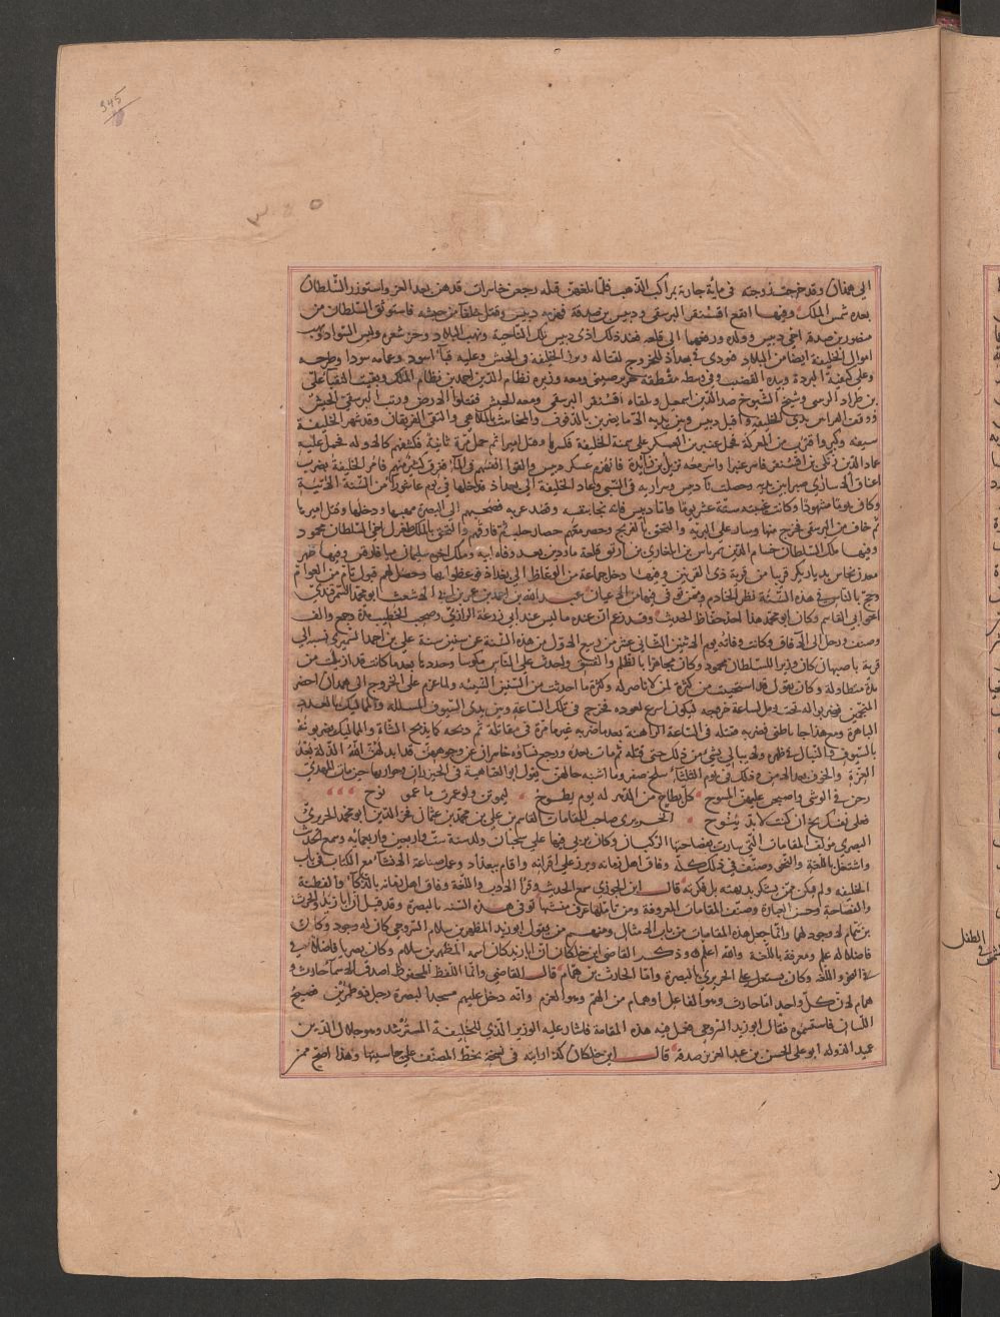 345
٣٤٥
الى همذان وقد خرجت زوجته فى مائة جارية بمراكب الذهب فلما بلغهن قتله رجعن خاسرات قد هن بعد العز واستوزر السلطان
بعده شمس الملك وفيها اتقع اقسنقر البرسقى ودبيس بن صدقة فهزمه دبيس وقتل خلقا من جيشه فاستوثق السلطان من
منصور بن صدقة اخى دبيس وولده ورفعهما الى قلعة فعند ذلك اذى دبيس تلك الناحية ونهب البلاد وجز شعره ولبس السواد ونهب
اموال الخليفة ايضا من البلاد فنودى فى بغداد للخروج لقتاله وبرز الخليفة فى الجيش وعليه قباء اسود وعمامة سودا وطرحه
وعلى كتفه البردة وبيده القضيب وفى وسطه منطقة حرير صينى ومعه وزيره نظام الدين احمد بن نظام الملك ونقيب النقباء على
بن طراد وشيخ الشيوخ صدر الدين اسمعيل وتلقاه اقسنقر البرسقى ومعه الجيش فقبلوا الارض ورتب البرسقى الجيش
ووقف القراء بين يدى الخليفة واقبل دبيس وبين يديه الاما يضربن بالدفوف والمخانيث بالملاهى والتقى الفريقان وقد شهر الخليفة
سيفه وكبر واقترب من المعركة فحمل عنبر بن العسكر على ميمنة الخليفة فكسرها وقتل اميرا ثم حمل مرة ثانية فكشفهم كالاولة فحمل عليه
عماد الدين زنكى بن اقسنقر فاسر عنبرا واسر معه بن زائدة فانهزم عسكر دبيس والقوا انفسهم فى الماء فغرق كثير منهم فامر الخليفة بضرب
اعناق الاسارى صبرا بين يديه وحصلت نساء دبيس وسراريه فى السبى وعاد الخليفة الى بغداد فدخلها فى يوم عاشوراء من السنة الاتية
وكان يوما مشهودا وكانت غيبته ستة عشر يوما واما دبيس فانه نجا بنفسه وقصد غزية فصحبهم الى البصرة ودخلها وقتل اميرها
ثم خاف من البرسقى فخرج منها وسار على البرية والتحق بالفرنج وحضر معهم حصار حلب ثم فارقهم والتحق بالملك طغرل اخى السلطان محمود
وفيها ملك السلطان حسام الدين تمرتاش بن ايلغازى بن ارتق قلعة ماردين بعد وفاة ابيه وملك اخوه سليمان ميافارقين وفيها ظهر
معدن نحاس بديار بكر قريبا من قرية ذى القرنين وفيها دخل جماعة من الوعاظ الى بغداد فوعظوا بها وحصل لهم قبول تام من العوام
وحج بالناس فى هذه السنة نظر الخادم وممن توفى فيها من الاعيان عبد الله بن احمد بن عمر بن ابى الاشعث ابو محمد السمرقندى
اخو ابى القاسم وكان ابو محمد هذا احد حفاظ الحديث وقد زعم ان عنده ما ليس عند ابى زرعة الرازى وصحب الخطيب مدة وجمع والف
وصنف ورحل الى الآفاق وكانت وفاته يوم الاثنين الثانى عشر من ربيع الاول من هذه السنة عن سنة على بن احمد السميرى نسبة الى
قرية باصبهان كان وزير السلطان محمود وكان مجاهرا بالظلم والفسق واحدث على الناس مكوسا وجددها بعد ما كانت قد ازيلت من
مدة متطاولة وكان يقول قد استحييت من كثرة ظلم من لا ناصر له وكثرة ما احدثت من السنن السيئة ولما عزم على الخروج الى همذان احضر
المنجمين فضربوا له تخت رمل لساعة خروجه ليكون اسرع لعوده فخرج فى تلك الساعة وبين يديه السيوف المسللة والمماليك بالعدد
الباهرة ومع هذا جاء باطنى فضربه فقتله فى الساعة الراهنة بعد ما ضربه غير مرة فى مقاتلة ثم ذبحه كما تذبح الشاة والمماليك يضربونه
بالسيوف والنبال فى ظهره ولا يبالى بشىء من ذلك حتى قتله ثم مات بعده ورجع نساؤه خاسرات عن وجوههن قد ابدلهن الله الذلة بعد
العزة والخوف بعد الامن وذلك فى يوم الثلثاء سلخ صفر وما اشبه حالهن بقول ابو العتاهية فى الخيزران وجواريها حين مات المهدى
رحن فى الوشى واصبحن عليهن المسوح كل نطاح من الدهر له يوم نطوح ليموتن ولو عمرت ما عمر نوح
فعلى نفسك نح ان كنت لا بد تنوح الحريرى صاحب المقامات القاسم بن على بن محمد بن عثمان فخر الدين ابو محمد الحريرى
البصرى مؤلف المقامات التى سارت بفصاحتها الركبان وكان يربى فيها على سحبان ولد سنة ست واربعين واربعمائة وسمع الحديث
واشتغل باللغة والنحو وصنف فى ذلك كله وفاق اهل زمانه وبرز على اقرانه واقام ببغداد وعمل صناعة الانشا مع الكتاب فى باب
الخليفة ولم يكن ممن تنكر بديهته بل فكرته قال ابن الجوزى سمع الحديث وقرأ الادب واللغة وفاق اهل زمانه بالذكاء والفطنة
والفصاحة وحسن العبارة وصنف المقامات المعروفة ومن تاملها عرف قدر منشيها توفى فى هذه السنة بالبصرة وقد قيل ان ابا زيد والحرث
بن همام لا وجود لهما وانما جعل هذه المقامات من باب الامثال ومنهم من يقول ابو زيد المطهر بن سلام السروجى كان له وجود وكان
فاضلا له علم ومعرفة باللغة والله اعلم وذكر القاضى ابن خلكان ان ابا زيد كان اسمه المطهر بن سلام وكان بصريا فاضلا فى
فى النحو واللغة وكان يشتغل على الحريرى بالبصرة واما الحارث بن همام قال القاضى وانما اللفظ المحفوظ اصدق الاسماء حارث و
همام لان كل واحد اما حارث وهو الفاعل او همام من الهم وهو العزم وانه دخل عليهم مسجد البصرة رجل ذو طمرين فصيح
اللسان فاستسموه فقال ابو زيد السروجى فعمل فيه هذه المقامة فاشار عليه الوزير الذى للخليفة المسترشد وهو جلال الدين
عميد الدولة ابو على الحسن بن عبد العزيز صدقة قال ابن خلكان كذا رايته فى نسخة بخط المصنف على حاشيتها وهذا اصح ممن